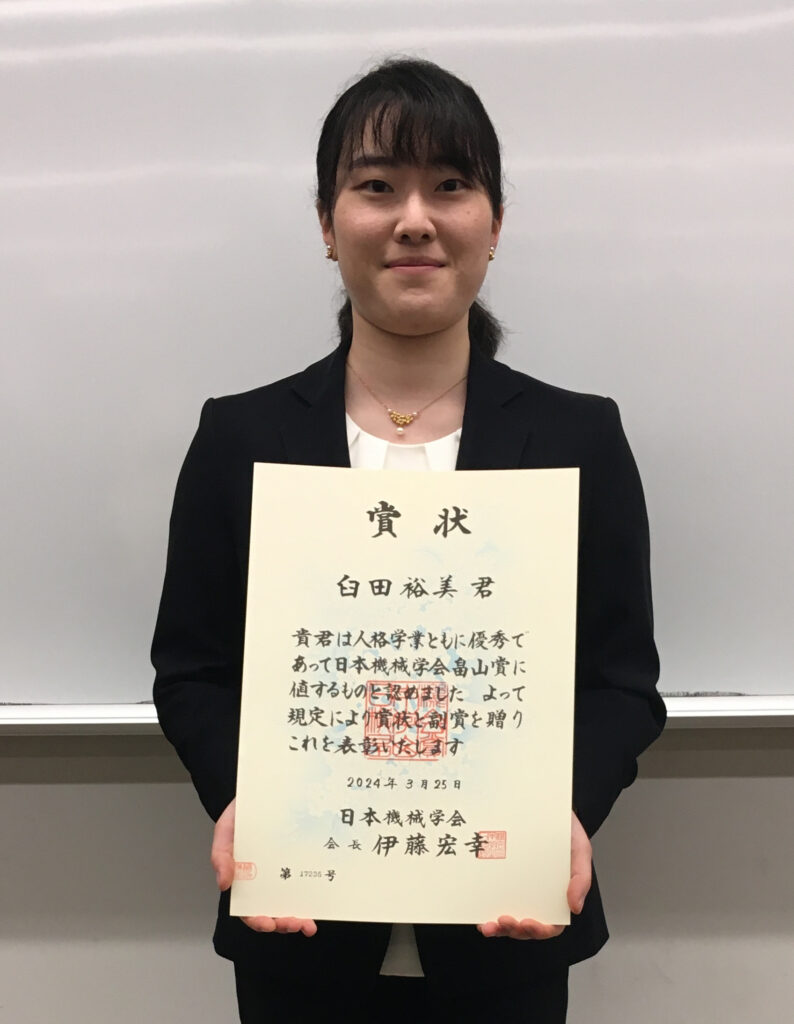 賞状
臼田裕美君
貴君は人格学業ともに優秀で
あって日本機械学会畠山賞に
値するものと認めました よって
規定により賞状と副賞を贈り
これを表彰いたします
2024年3月25日
日本機械学会
会長 伊藤宏幸
第 17235 号